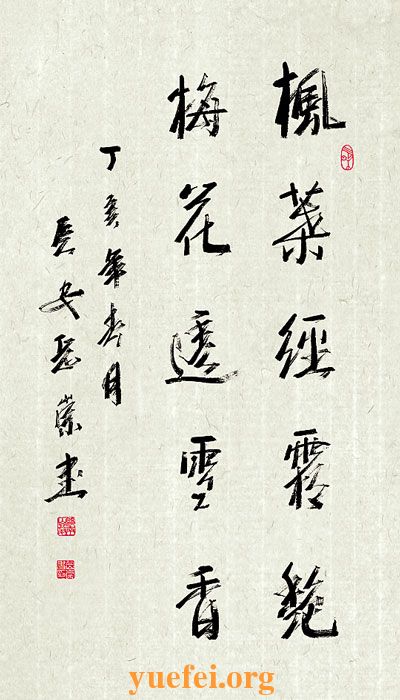 楓葉經霜艷
梅花透雪香
丁亥年春月
長安崇書
yuefei.org